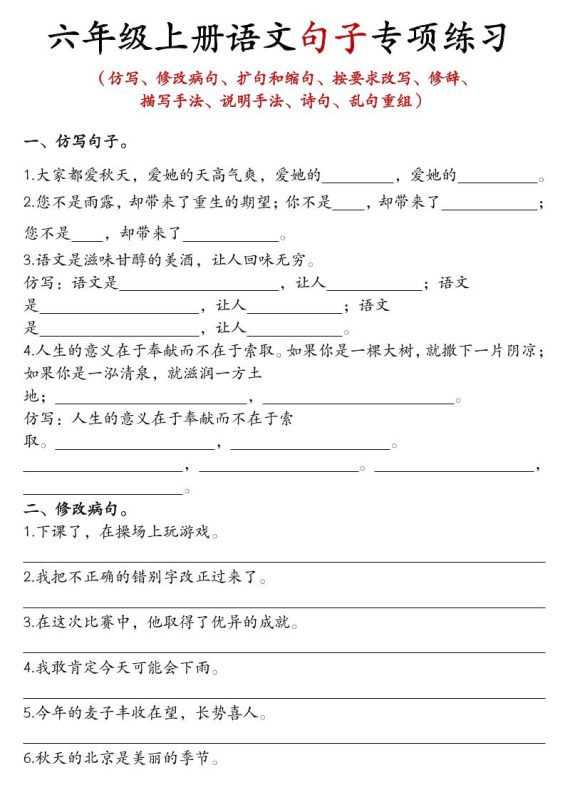 六年级上册语文句子专项练习
（仿写、修改病句、扩句和缩句、按要求改写、修辞、
描写手法、说明手法、诗句、乱句重组）
一、仿写句子。
1.大家都爱秋天，爱她的天高气爽，爱她的________，爱她的_________。
2.您不是雨露，却带来了重生的期望；你不是____，却带来了___________；
您不是____，却带来了___________。
3.语文是滋味甘醇的美酒，让人回味无穷。
仿写：语文是__________________，让人___________；语文
是__________________，让人___________；语文
是__________________，让人___________。
4.人生的意义在于奉献而不在于索取。如果你是一棵大树，就撒下一片阴凉；
如果你是一泓清泉，就滋润一方土
地；______________________，______________________。
仿写：人生的意义在于奉献而不在于索
取。__________________，__________________。
__________________，__________________。__________________，
__________________。
二、修改病句。
1.下课了，在操场上玩游戏。
2.我把不正确的错别字改正过来了。
3.在这次比赛中，他取得了优异的成就。
4.我敢肯定今天可能会下雨。
5.今年的麦子丰收在望，长势喜人。
6.秋天的北京是美丽的季节。